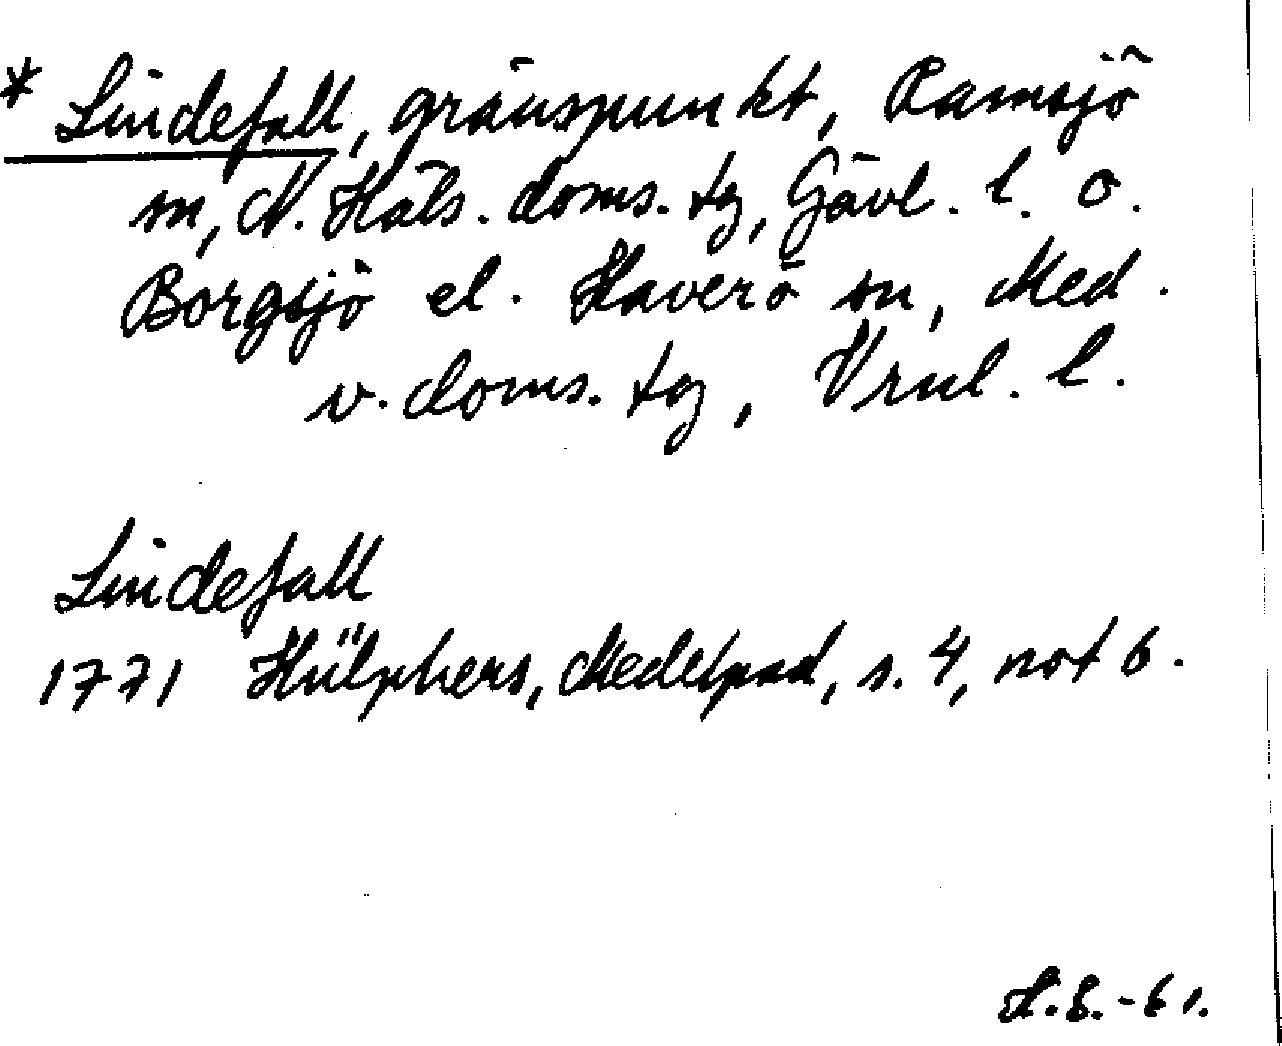 * Lindefall, gränspunkt, Ramsjö
sn, N. Häls. doms. tg, Gävl. l. o.
Borgsjö el. Haverö sn, Med.
v. doms. tg, Vrnl. l.
Lindefall
1771 Hülphers, Medelpad, s. 4, not 6.
H.S.-61.